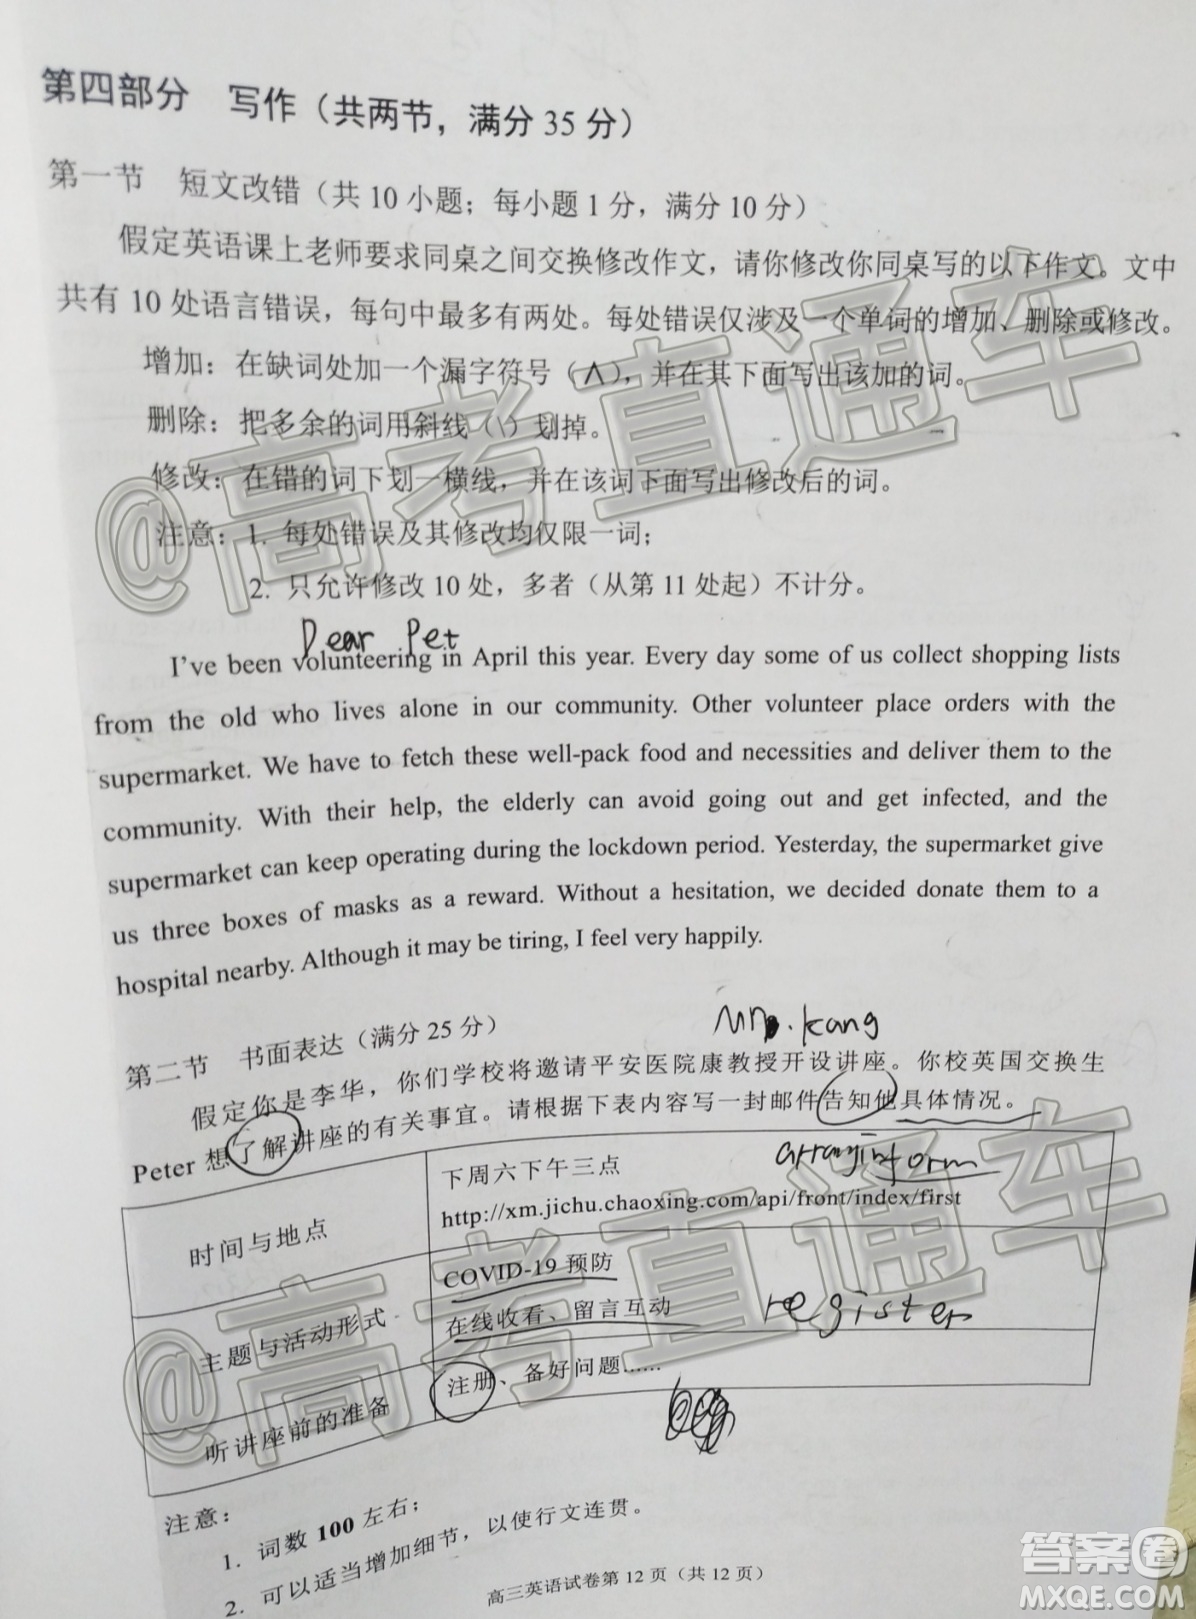 第四部分 写作（共两节，满分 35 分）
第一节 短文改错（共 10 小题；每小题 1 分，满分 10 分）
假定英语课上老师要求同桌之间交换修改作文，请你修改你同桌写的以下作文。文中
共有 10 处语言错误，每句中最多有两处。每处错误仅涉及一个单词的增加、删除或修改。
增加：在缺词处加一个漏字符号（∧），并在其下面写出该加的词。
删除：把多余的词用斜线（\）划掉。
修改：在错的词下划一横线，并在该词下面写出修改后的词。
注意：1. 每处错误及其修改均仅限一词；
2. 只允许修改 10 处，多者（从第 11 处起）不计分。
Dear Pet
I've been volunteering in April this year. Every day some of us collect shopping lists
from the old who lives alone in our community. Other volunteer place orders with the
supermarket. We have to fetch these well-pack food and necessities and deliver them to the
community. With their help, the elderly can avoid going out and get infected, and the
supermarket can keep operating during the lockdown period. Yesterday, the supermarket give
us three boxes of masks as a reward. Without a hesitation, we decided donate them to a
hospital nearby. Although it may be tiring, I feel very happily.
第二节 书面表达（满分 25 分）
kang
假定你是李华，你们学校将邀请平安医院康教授开设讲座。你校英国交换生
Peter 想了解讲座的有关事宜。请根据下表内容写一封邮件告知他具体情况。
时间与地点
下周六下午三点
http://xm.jichu.chaoxing.com/api/front/index/first
form
主题与活动形式
COVID-19 预防
在线收看、留言互动
register
听讲座前的准备
注册、备好问题……
注意：
1. 词数 100 左右；
2. 可以适当增加细节，以使行文连贯。
高三英语试卷第 12 页（共 12 页）
@高考直通车
@高考直通车
答案圈
MXQE.COM